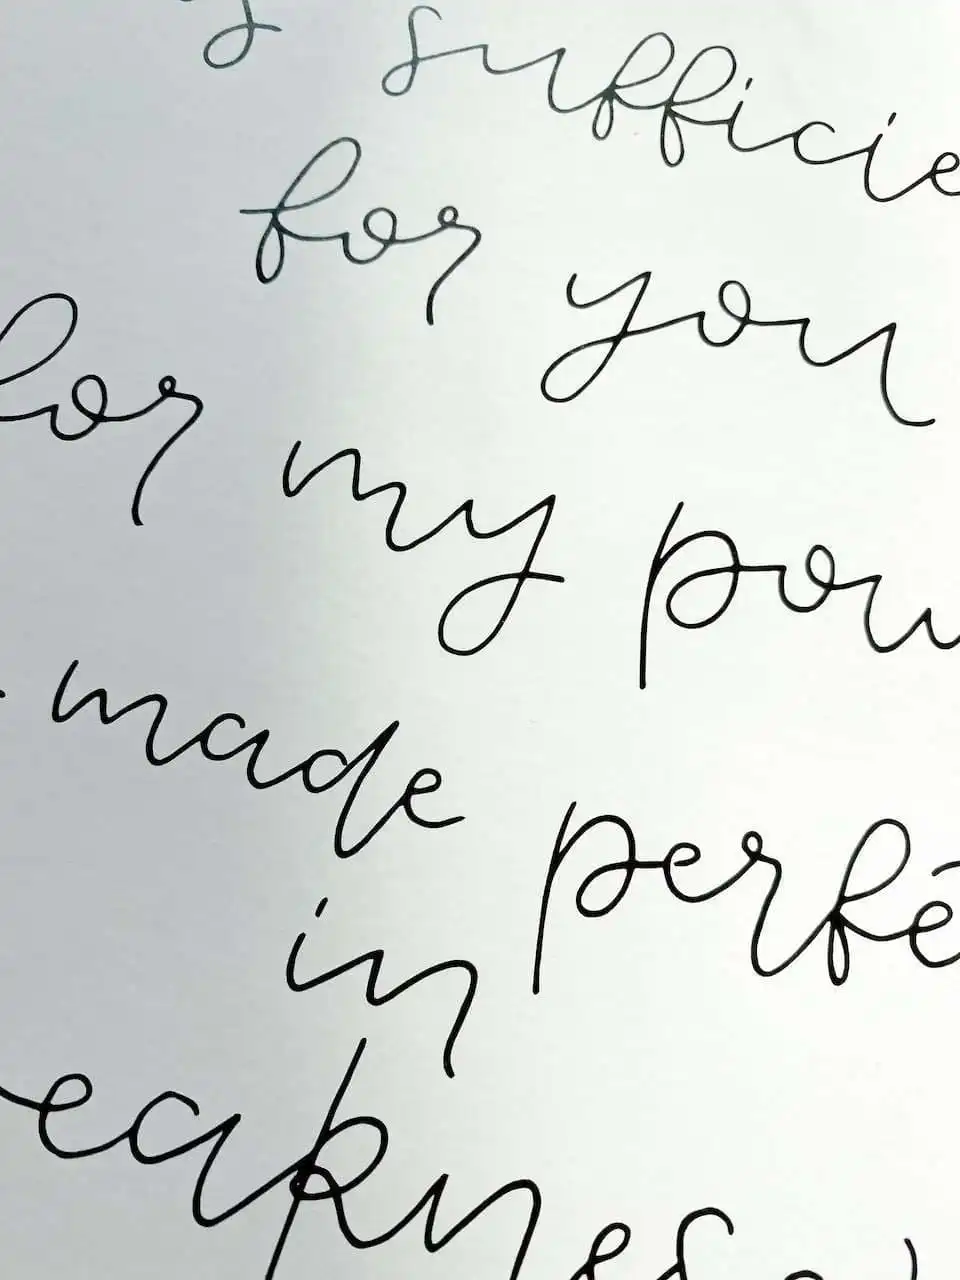 s sufficie
for you
for my pow
made perfe
in
eakness